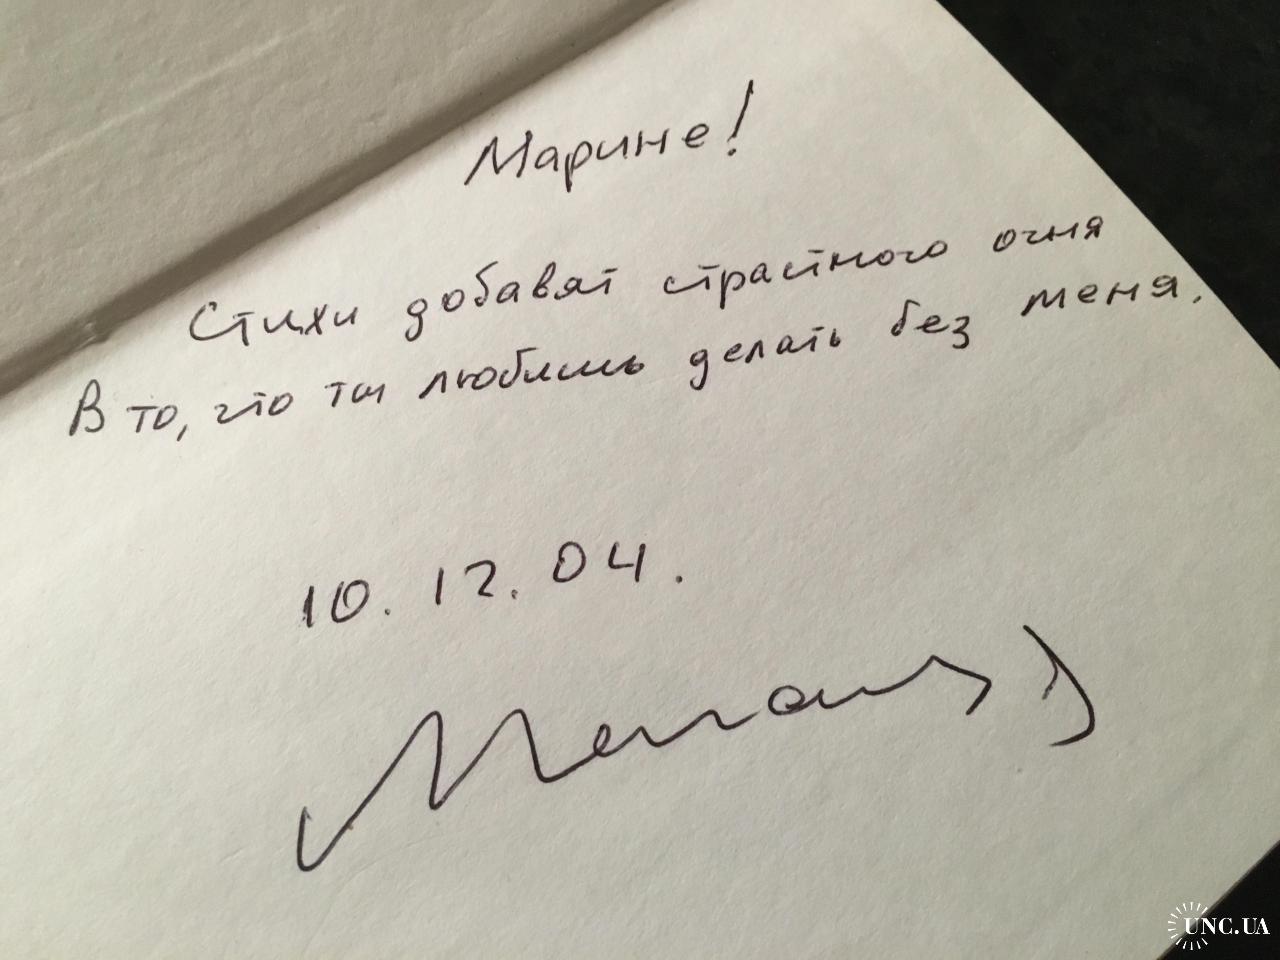 Марине!
Стихи добавят страстного огня
В то, что ты любишь делать без меня.
10.12.04.
UNC.UA